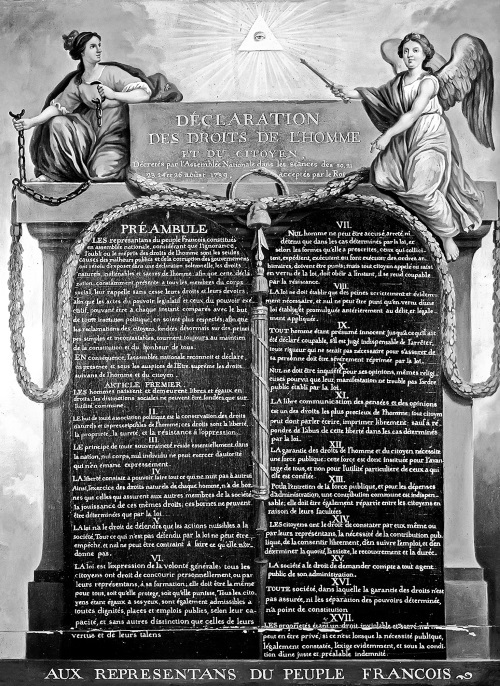 DÉCLARATION
DES DROITS DE L'HOMME
ET DU CITOYEN,
Décretés par l'Assemblée Nationale dans les séances des 20, 21
23, 24 et 26 aoust 1789, acceptés par le Roi
PRÉAMBULE
LES représentans du peuple François, constitués
en assemblée nationale, considérant que l'ignorance,
l'oubli ou le mépris des droits de l'homme sont les seules
causes des malheurs publics et de la corruption des gouvernemens,
ont résolu d'exposer dans une déclaration solemnelle, les droits
naturels, inaliénables et sacrés de l'homme; afin que cette décla-
ration, constamment présente a tous les membres du corps
social, leur rappelle sans cesse leurs droits et leurs devoirs;
afin que les actes du pouvoir législatif et ceux du pouvoir exé-
cutif, pouvant être a chaque instant comparés avec le but
de toute institution politique, en soient plus respectés; afin que
les réclamations des citoyens, fondées désormais sur des princi-
pes simples et incontestables, tournent toujours au maintien
de la constitution et du bonheur de tous.
EN conséquence, l'assemblée nationale reconnoit et déclare,
en présence et sous les auspices de l'Etre suprême les droits
suivans de l'homme et du citoyen.
ARTICLE PREMIER.
LES hommes naissent et demeurent libres et égaux en
droits; les distinctions sociales ne peuvent être fondées que sur
l'utilité commune.
II.
LE but de toute association politique est la conservation des droits
naturels et imprescriptibles de l'homme; ces droits sont la liberté,
la propriété, la sureté, et la résistance à l'oppression.
III.
LE principe de toute souveraineté réside essentiellement dans
la nation, nul corps, nul individu ne peut exercer d'autorité
qui n'en émane expressément.
IV.
LA liberté consiste a pouvoir faire tout ce qui ne nuit pas à autrui
Ainsi, l'exercice des droits naturels de chaque homme, n'a de bor-
nes que celles qui assurent aux autres membres de la société
la jouissance de ces mêmes droits; ces bornes ne peuvent
être déterminées que par la loi.
V.
LA loi n'a le droit de défendre que les actions nuisibles à la
société. Tout ce qui n'est pas défendu par la loi ne peut être
empêché, et nul ne peut être contraint à faire ce qu'elle n'or-
donne pas.
VI.
LA loi est l'expression de la volonté générale; tous les
citoyens ont droit de concourir personnellement, ou par
leurs représentans, à sa formation; elle doit être la même
pour tous, soit qu'elle protege, soit qu'elle punisse. Tous les cito-
yens étant égaux à ses yeux, sont également admissibles a
toutes dignités, places et emplois publics, selon leur ca-
pacité, et sans autres distinction que celles de leurs
vertus et de leurs talens.
VII.
NUL homme ne peut être accusé, arreté ni
détenu que dans les cas déterminés par la loi, et
selon les formes qu'elle a prescrites, ceux qui sollici-
tent, expédient, exécutent ou font exécuter des ordres ar-
bitraires, doivent être punis; mais tout citoyen appelé ou saisi
en vertu de la loi, doit obéir a l'instant, il se rend coupable
par la résistance.
VIII.
LA loi ne doit établir que des peines strictement et évidem-
ment nécessaires, et nul ne peut être puni qu'en vertu d'une
loi établie et promulguée antérieurement au délit, et légale-
ment appliquée.
IX.
TOUT homme étant présumé innocent jusqu'a ce qu'il ait
été déclaré coupable, s'il est jugé indispensable de l'arrêter,
toute rigueur qui ne serait pas nécessaire pour s'assurer de
sa personne doit être sévèrement réprimée par la loi.
X.
NUL ne doit être inquiété pour ses opinions, mêmes religi-
euses pourvu que leur manifestation ne trouble pas l'ordre
public établi par la loi.
XI.
LA libre communication des pensées et des opinions
est un des droits les plus precieux de l'homme; tout citoyen
peut dont parler écrire, imprimer librement: sauf à ré-
pondre de l'abus de cette liberté dans les cas déterminés
par la loi.
XII.
LA garantie des droits de l'homme et du citoyen nécessite
une force publique; cette force est donc instituée pour l'avan-
tage de tous, et non pour l'utilité particuliere de ceux a qui
elle est confiée.
XIII.
Pour l'entretien de la force publique, et pour les dépenses
d'administration, une contribution commune est indispen-
sable; elle doit être également répartie entre les citoyens en
raison de leurs facultées.
XIV.
LES citoyens ont le droit de constater par eux même ou
par leurs représentans, la nécessité de la contribution pub-
lique, de la consentir librement, d'en suivre l'emploi, et d'en
déterminer la quotité, l'assiette, le recouvrement et la durée.
XV.
LA société a le droit de demander compte a tout agent
public de son administration.
XVI.
TOUTE société, dans laquelle la garantie des droits n'est
pas assurée, ni les séparation des pouvoirs déterminée,
n'a point de constitution.
XVII.
LES propriétés étant un droit inviolable et sacré, nul ne
peut en être privé, si ce n'est lorsque la nécessité publique,
légalement constatée, l'exige evidemment, et sous la condi-
tion d'une juste et préalable indemnité.
AUX REPRESENTANS DU PEUPLE FRANCOIS